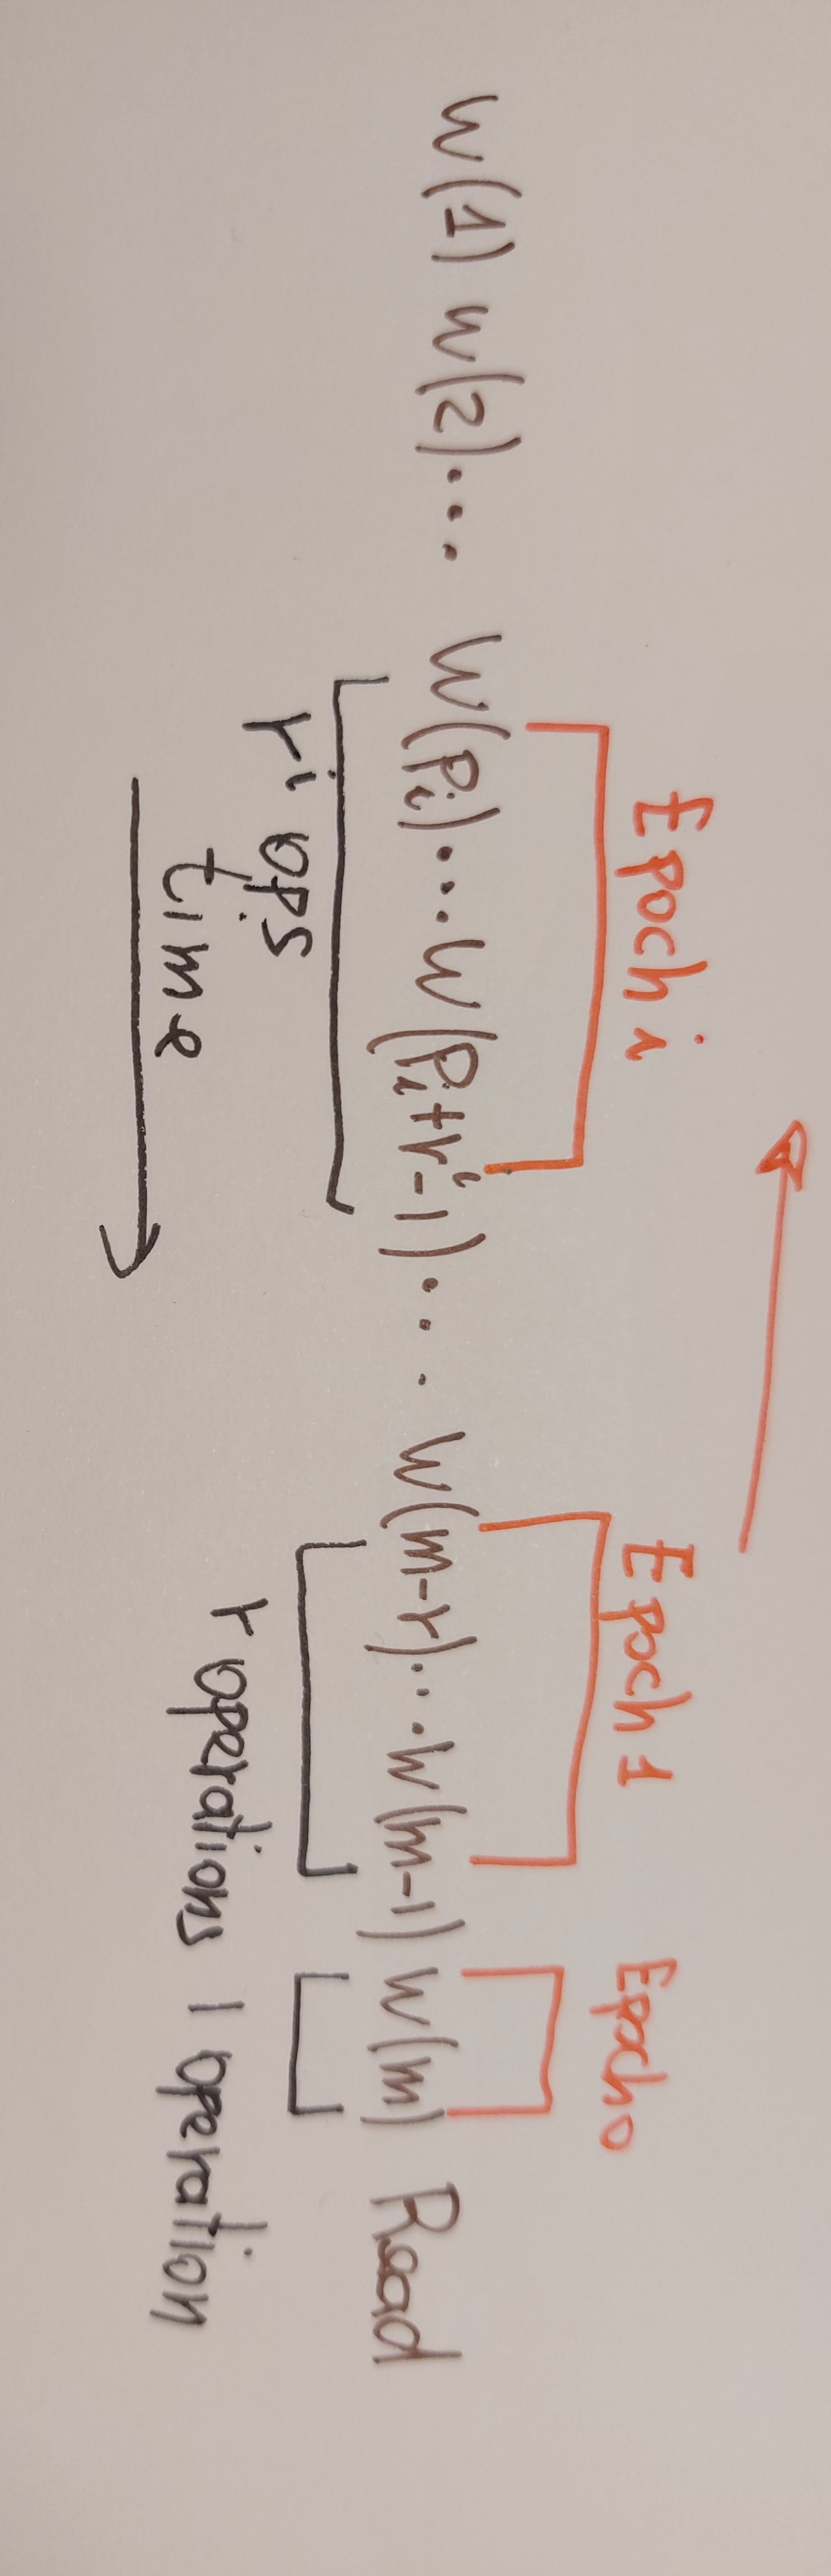 Epoch i Epoch 1 Epoch 0
W(1) W(2)... W(pᵢ)...W(pᵢ+rⁱ-1)... W(m-r)...W(m-1) W(m) Read
rⁱ ops r operations 1 operation
time